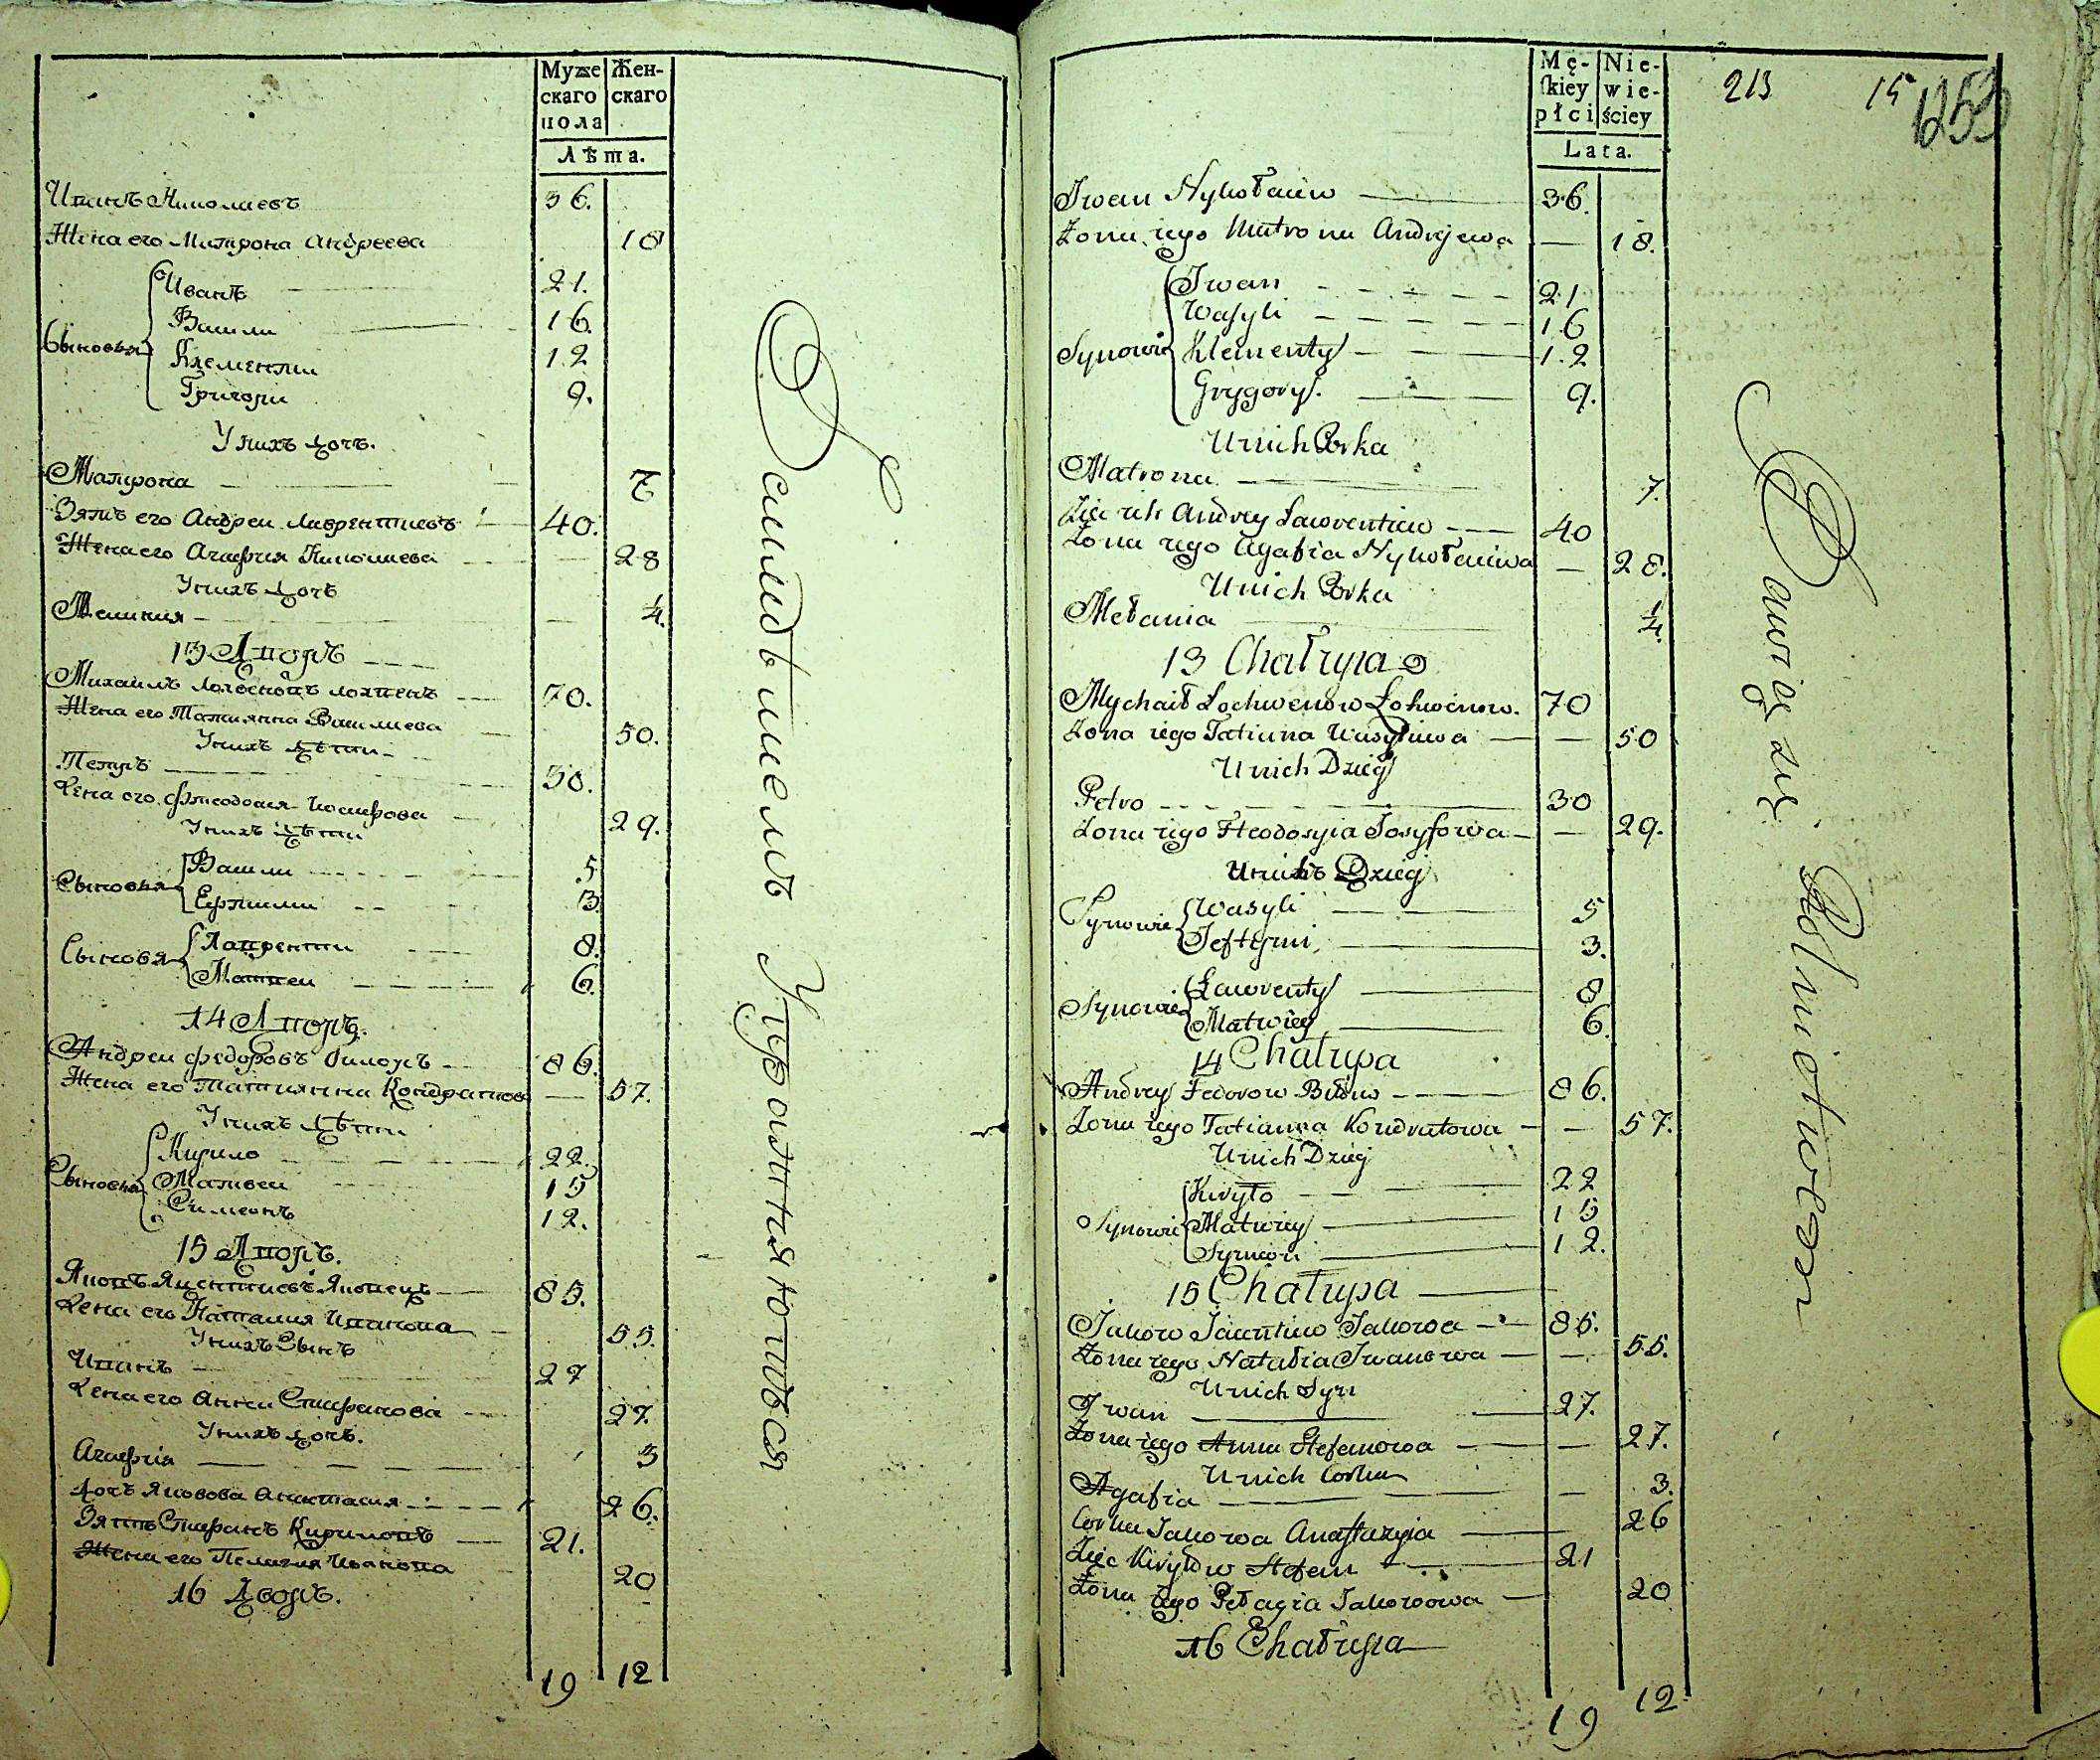 Муже Жен-
скаго скаго
пола
Лѣта.
Иванъ Николаевъ 36.
Жена его Матрона Андреева 18
Иванъ 21.
Васили 16.
Сыновья Клементи 12
Григори 9.
У нихъ дочъ.
Матрона 7
Зять его Андреи Лаврентиевъ 40.
Жена его Агафия Николаева 28
У нихъ дочъ
Мелания 4.
13 Дворъ
Михаилъ 70.
Жена его Татиянна Василиева 50.
У нихъ дѣти
Петръ 30.
Жена его Фтеодосия Иосифова 29.
У нихъ дѣти
Васили 5
Сыновья
Ефтими 3.
Лаврентти 8.
Сыновья
Матвеи 6.
14 Дворъ.
Андреи Федоровъ 86.
Жена его Татиянна Кондратова 57.
У нихъ дѣти
Кирило 22.
Сыновья Матвеи 15
Симеонъ 12.
15 Дворъ.
Яковъ 85.
Жена его Наталия Иванова 55.
У нихъ Сынъ
Иванъ 27
Жена его Анна Стефанова 27.
У нихъ дочъ.
Агафия 3
дочъ Яковова Анастасия 26.
Зять Стефанъ Кириловъ 21.
Жена его Пелагия 20
16 Дворъ.
19 12
Земледѣлиемъ Упражняютъся
Mę- Nie-
skiey wie-
płci ściey
Lata.
213 15 1253
Iwan Nykołaiów 36.
Zona iego Matrona Andrejewa 18.
Iwan 21
Wasyli 16
Synowie Klementy 12
Grygory 9.
U nich Corka
Matrona 7.
Zięć ich Andrey Lawrentiew 40
Zona iego Agafia Nykołaiwa 28.
U nich Corka
Mełania 4.
13 Chałupa
Mychaił Lochwenow Łohwinow. 70
Zona iego Tatiana Wasyliwa 50
U nich Dzieĉi
Petro 30
Zona iego Fteodosyia Josyfowa 29.
U nichъ Dzieci
Wasyli 5
Synowie
Jeftymi 3.
Lawrenty 8
Synowie
Matwiey 6.
14 Chałupa
Andrey Fedorow 86.
Zona iego Tatianna Kondratowa 57.
U nich Dzieci
Kiryło 22
Synowie Matwiey 15
Symeon 12.
15 Chałupa
Jakow Jakowa 85.
Zona iego Natalia Iwanowa 55.
U nich Syn
Iwan 27.
Zona iego Anna Stefanowa 27.
U nich Corka
Agafia 3.
Corka Jakowa Anastazyia 26
Zięć Kiryłow Stefan 21
Zona iego Pełagia Jakowowa 20
16 Chałupa
19 12
Bawią się Rolnictwem